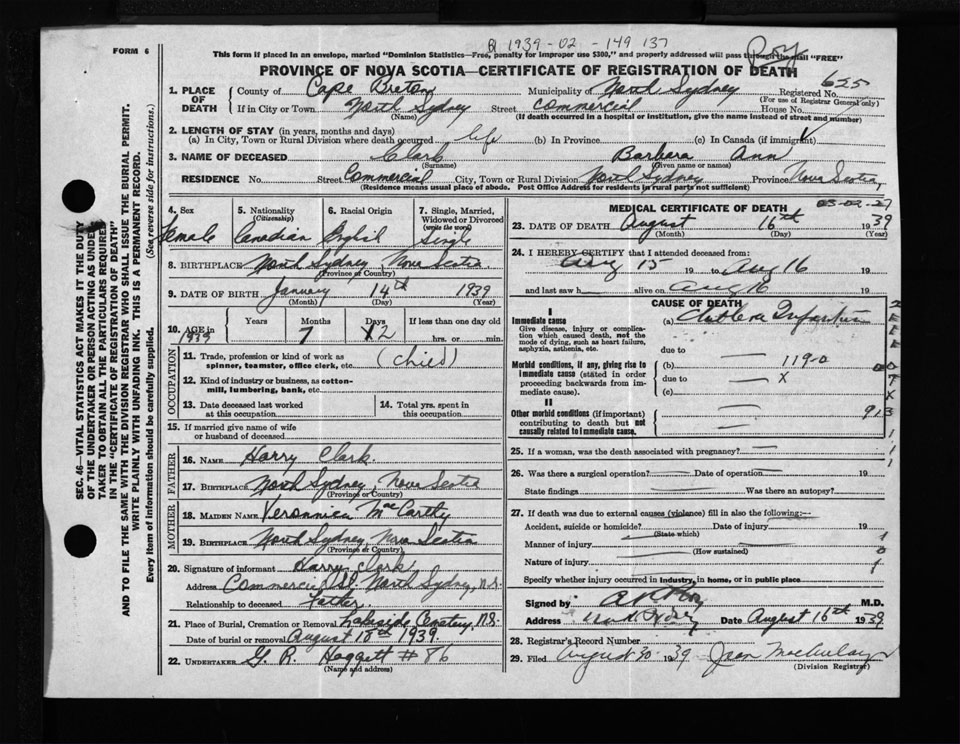 FORM 6
1939-02-149 137
This form if placed in an envelope, marked "Dominion Statistics—Free, penalty for improper use $300," and properly addressed will pass through the mail "FREE"
PROVINCE OF NOVA SCOTIA—CERTIFICATE OF REGISTRATION OF DEATH
625
1. PLACE OF DEATH County of Cape Breton Municipality of North Sydney Registered No.
(For use of Registrar General only)
If in City or Town North Sydney Street Commercial House No.
(Name) (If death occurred in a hospital or institution, give the name instead of street and number)
2. LENGTH OF STAY (in years, months and days)
(a) In City, Town or Rural Division where death occurred life (b) In Province (c) In Canada (if immigrant)
3. NAME OF DECEASED Clark Barbara Ann
(Surname) (Given name or names)
RESIDENCE No. Street Commercial City, Town or Rural Division North Sydney Province Nova Scotia
(Residence means usual place of abode. Post Office Address for residents in rural parts not sufficient)
4. Sex Female
5. Nationality (Citizenship) Canadian
6. Racial Origin
7. Single, Married, Widowed or Divorced (write the word) Single
8. BIRTHPLACE North Sydney, Nova Scotia
(Province or Country)
9. DATE OF BIRTH January 14th 1939
(Month) (Day) (Year)
10. AGE in Years Months Days If less than one day
1939 7 X2 hrs. or min.
OCCUPATION
11. Trade, profession or kind of work as spinner, teamster, office clerk, etc. (Child)
12. Kind of industry or business, as cotton-mill, lumbering, bank, etc.
13. Date deceased last worked at this occupation
14. Total yrs. spent in this occupation
15. If married give name of wife or husband of deceased
FATHER
16. NAME Harry Clark
17. BIRTHPLACE North Sydney, Nova Scotia
(Province or Country)
MOTHER
18. MAIDEN NAME Veronnica MacCarthy
19. BIRTHPLACE North Sydney, Nova Scotia
(Province or Country)
20. Signature of informant Harry Clark
Address Commercial St. North Sydney, N.S.
Relationship to deceased Father.
21. Place of Burial, Cremation or Removal Lakeside Cemetery, N.S.
Date of burial or removal August 18th 1939.
22. UNDERTAKER G. R. Haggett #86
(Name and address)
MEDICAL CERTIFICATE OF DEATH
03-02-27
23. DATE OF DEATH August 16th 1939
(Month) (Day) (Year)
24. I HEREBY CERTIFY that I attended deceased from:
Aug 15 19 to Aug 16 19
and last saw h alive on Aug 16 19
CAUSE OF DEATH
I
Immediate cause (a) Cholera Infantum
Give disease, injury or complication which caused death, not the mode of dying, such as heart failure, asphyxia, asthenia, etc.
due to
Morbid conditions, if any, giving rise to immediate cause (stated in order proceeding backwards from immediate cause). (b) 119-0
due to X
(c)
II
Other morbid conditions (if important) contributing to death but not causally related to immediate cause.
25. If a woman, was the death associated with pregnancy?
26. Was there a surgical operation? Date of operation 19
State findings Was there an autopsy?
27. If death was due to external causes (violence) fill in also the following:—
Accident, suicide or homicide? Date of injury 19
(State which)
Manner of injury
(How sustained)
Nature of injury
Specify whether injury occurred in industry, in home, or in public place
Signed by M.D.
Address Date August 16th 1939
28. Registrar's Record Number
29. Filed August 30 1939
(Division Registrar)
SEC. 46—VITAL STATISTICS ACT MAKES IT THE DUTY
OF THE UNDERTAKER OR PERSON ACTING AS UNDER
TAKER TO OBTAIN ALL THE PARTICULARS REQUIRED
IN THE "CERTIFICATE OF REGISTRATION OF DEATH"
AND TO FILE THE SAME WITH THE DIVISION REGISTRAR WHO SHALL ISSUE THE BURIAL PERMIT.
WRITE PLAINLY WITH UNFADING INK. THIS IS A PERMANENT RECORD.
Every item of Information should be carefully supplied. (See reverse side for instructions.)